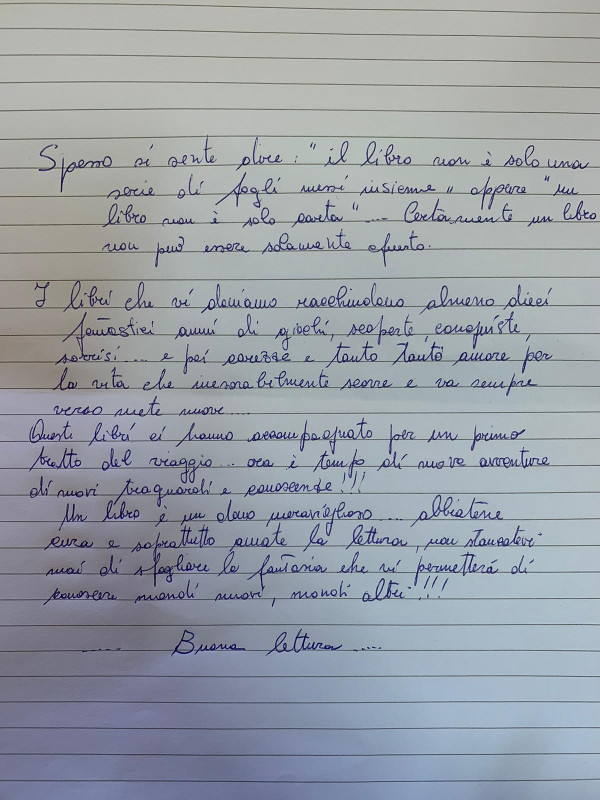 Spesso si sente dire: "il libro non è solo una
serie di fogli messi insieme" oppure "un
libro non è solo carta".... Certamente un libro
non può essere solamente questo.
I libri che vi doniamo racchiudono almeno dieci
fantastici anni di giochi, scoperte, conquiste,
sorrisi.... e poi carezze e tanto tanto amore per
la vita che inesorabilmente scorre e va sempre
verso mete nuove....
Questi libri ci hanno accompagnato per un primo
tratto del viaggio... ora è tempo di nuove avventure
di nuovi traguardi e conoscenze!!!
Un libro è un dono meraviglioso.... abbiatene
cura e soprattutto amate la lettura, non stancatevi
mai di sfogliare la fantasia che vi permetterà di
conoscere mondi nuovi, mondi altri!!!
..... Buona lettura .....